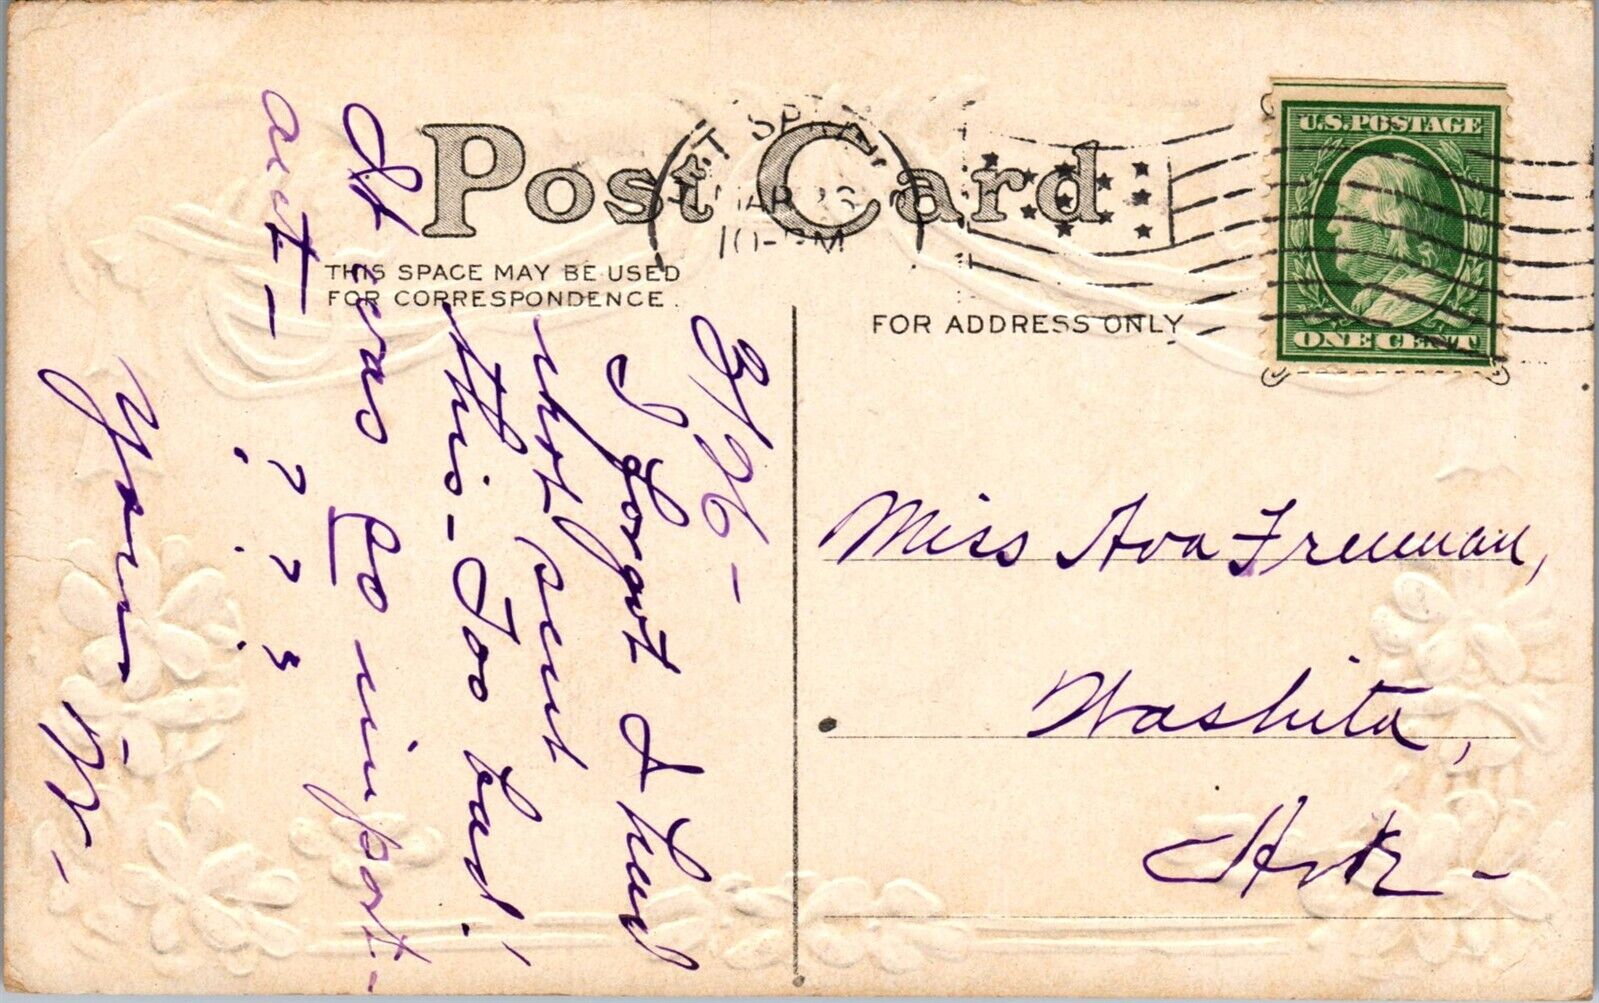 Post Card
THIS SPACE MAY BE USED
FOR CORRESPONDENCE.
FOR ADDRESS ONLY
U.S. POSTAGE
ONE CENT
10-PM
3/26-
I forgot I had
not sent
this - Too bad!
It was so import-
ant -
? ? ?
? ? ?
Yours
Miss Ava Freeman,
Washita,
Ark -